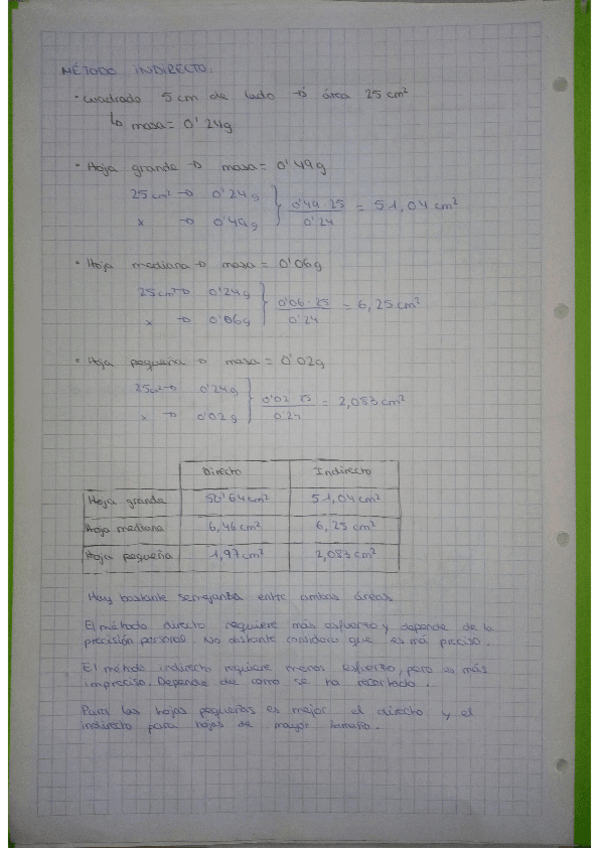 MÉTODO INDIRECTO.
• Cuadrado 5 cm de lado → área 25 cm²
↳ masa = 0'24g
• Hoja grande → masa = 0'49g
25 cm² → 0'24g } 0'49 · 25 / 0'24 = 51,04 cm²
x → 0'49g
• Hoja mediana → masa = 0'06g
25cm² → 0'24g } 0'06 · 25 / 0'24 = 6,25 cm²
x → 0'06g
• Hoja pequeña → masa = 0'02g
25cm² → 0'24g } 0'02 · 25 / 0'24 = 2,083 cm²
x → 0'02g
Directo Indirecto
Hoja grande 50'64cm² 51,04 cm²
Hoja mediana 6,46 cm² 6,25 cm²
Hoja pequeña 1,97cm² 2,083 cm²
Hay bastante semejanba entre ambas áreas
El método directo requiere más esfuerzo y depende de la
precisión personal. No obstante considero que es má preciso.
El método indirecto requiere menos esfuerzo, pero es más
impreciso. Depende de como se ha recortado.
Para las hojas pequeñas es mejor el directo y el
indirecto para hojas de mayor tamaño.